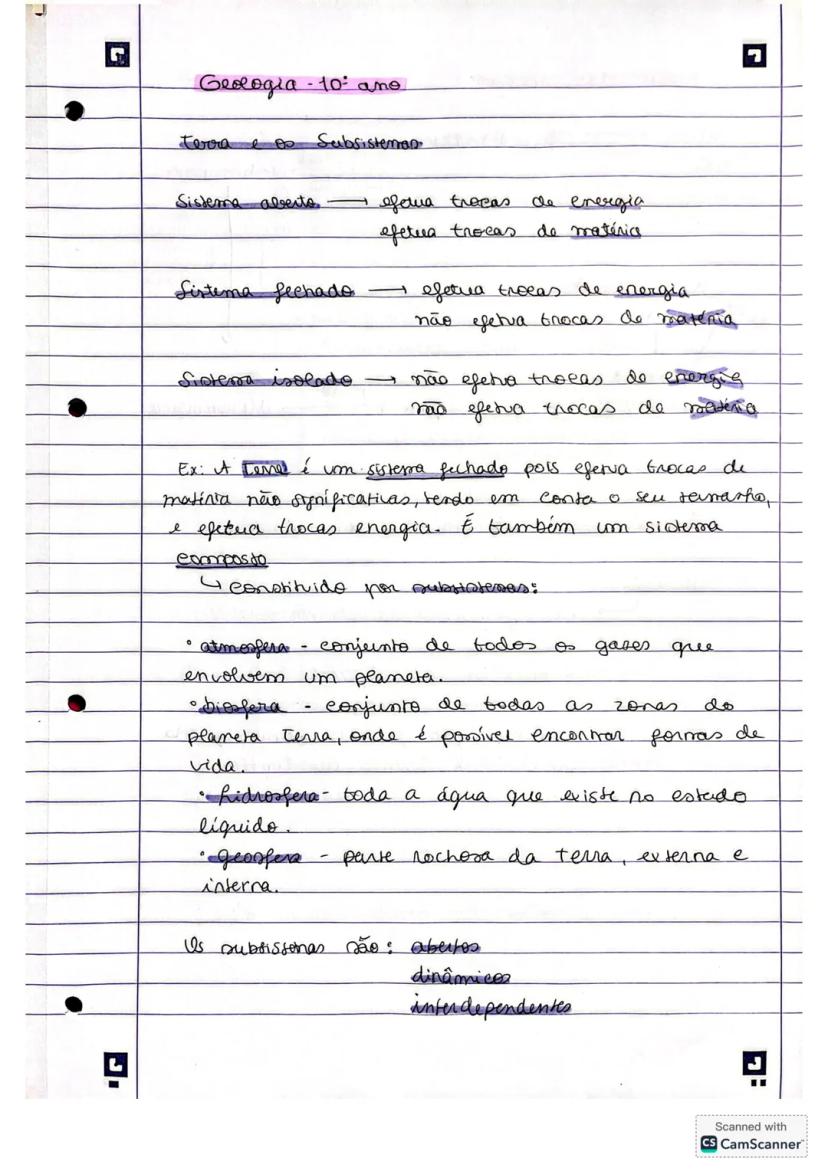 Geologia - 10º ano
terra e os Subsistemas
Sistema aberto → efetua trocas de energia
efetua trocas de matéria
Sistema fechado → efetua trocas de energia
não efetua trocas de matéria
Sistema isolado → não efetua trocas de energia
não efetua trocas de matéria
Ex: A Terra é um sistema fechado pois efetua trocas de
matéria não significativas, tendo em conta o seu tamanho,
e efetua trocas energia. É também um sistema
composto
↳ constituido por subsistemas:
• atmosfera - conjunto de todos os gases que
envolvem um planeta.
• biosfera - conjunto de todas as zonas do
planeta Terra, onde é possível encontrar formas de
vida.
• hidrosfera - toda a água que existe no estado
líquido.
• geosfera - parte rochosa da terra, externa e
interna.
Os subsistemas são: abertos
dinâmicos
interdependentes
Scanned with
CS CamScanner